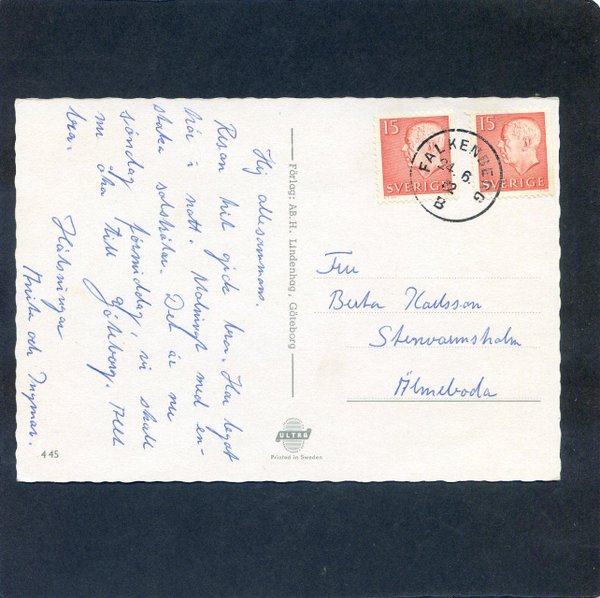 Hej allesammans.
Resan hit gick bra. Har legat
här i natt. Molnigt med en-
staka solstrålar. Det är nu
söndag förmiddag, vi skall
nu åka till Göteborg. Allt
bra.
Hälsningar
Anita och Ingmar.
Förlag: AB. H. Lindenhag, Göteborg
15
SVERIGE
15
SVERIGE
FALKENBERG
24. 6.
62
B
Fru
Berta Karlsson
Stenvarmsholm
Älmeboda
ULTRA
Printed in Sweden
445